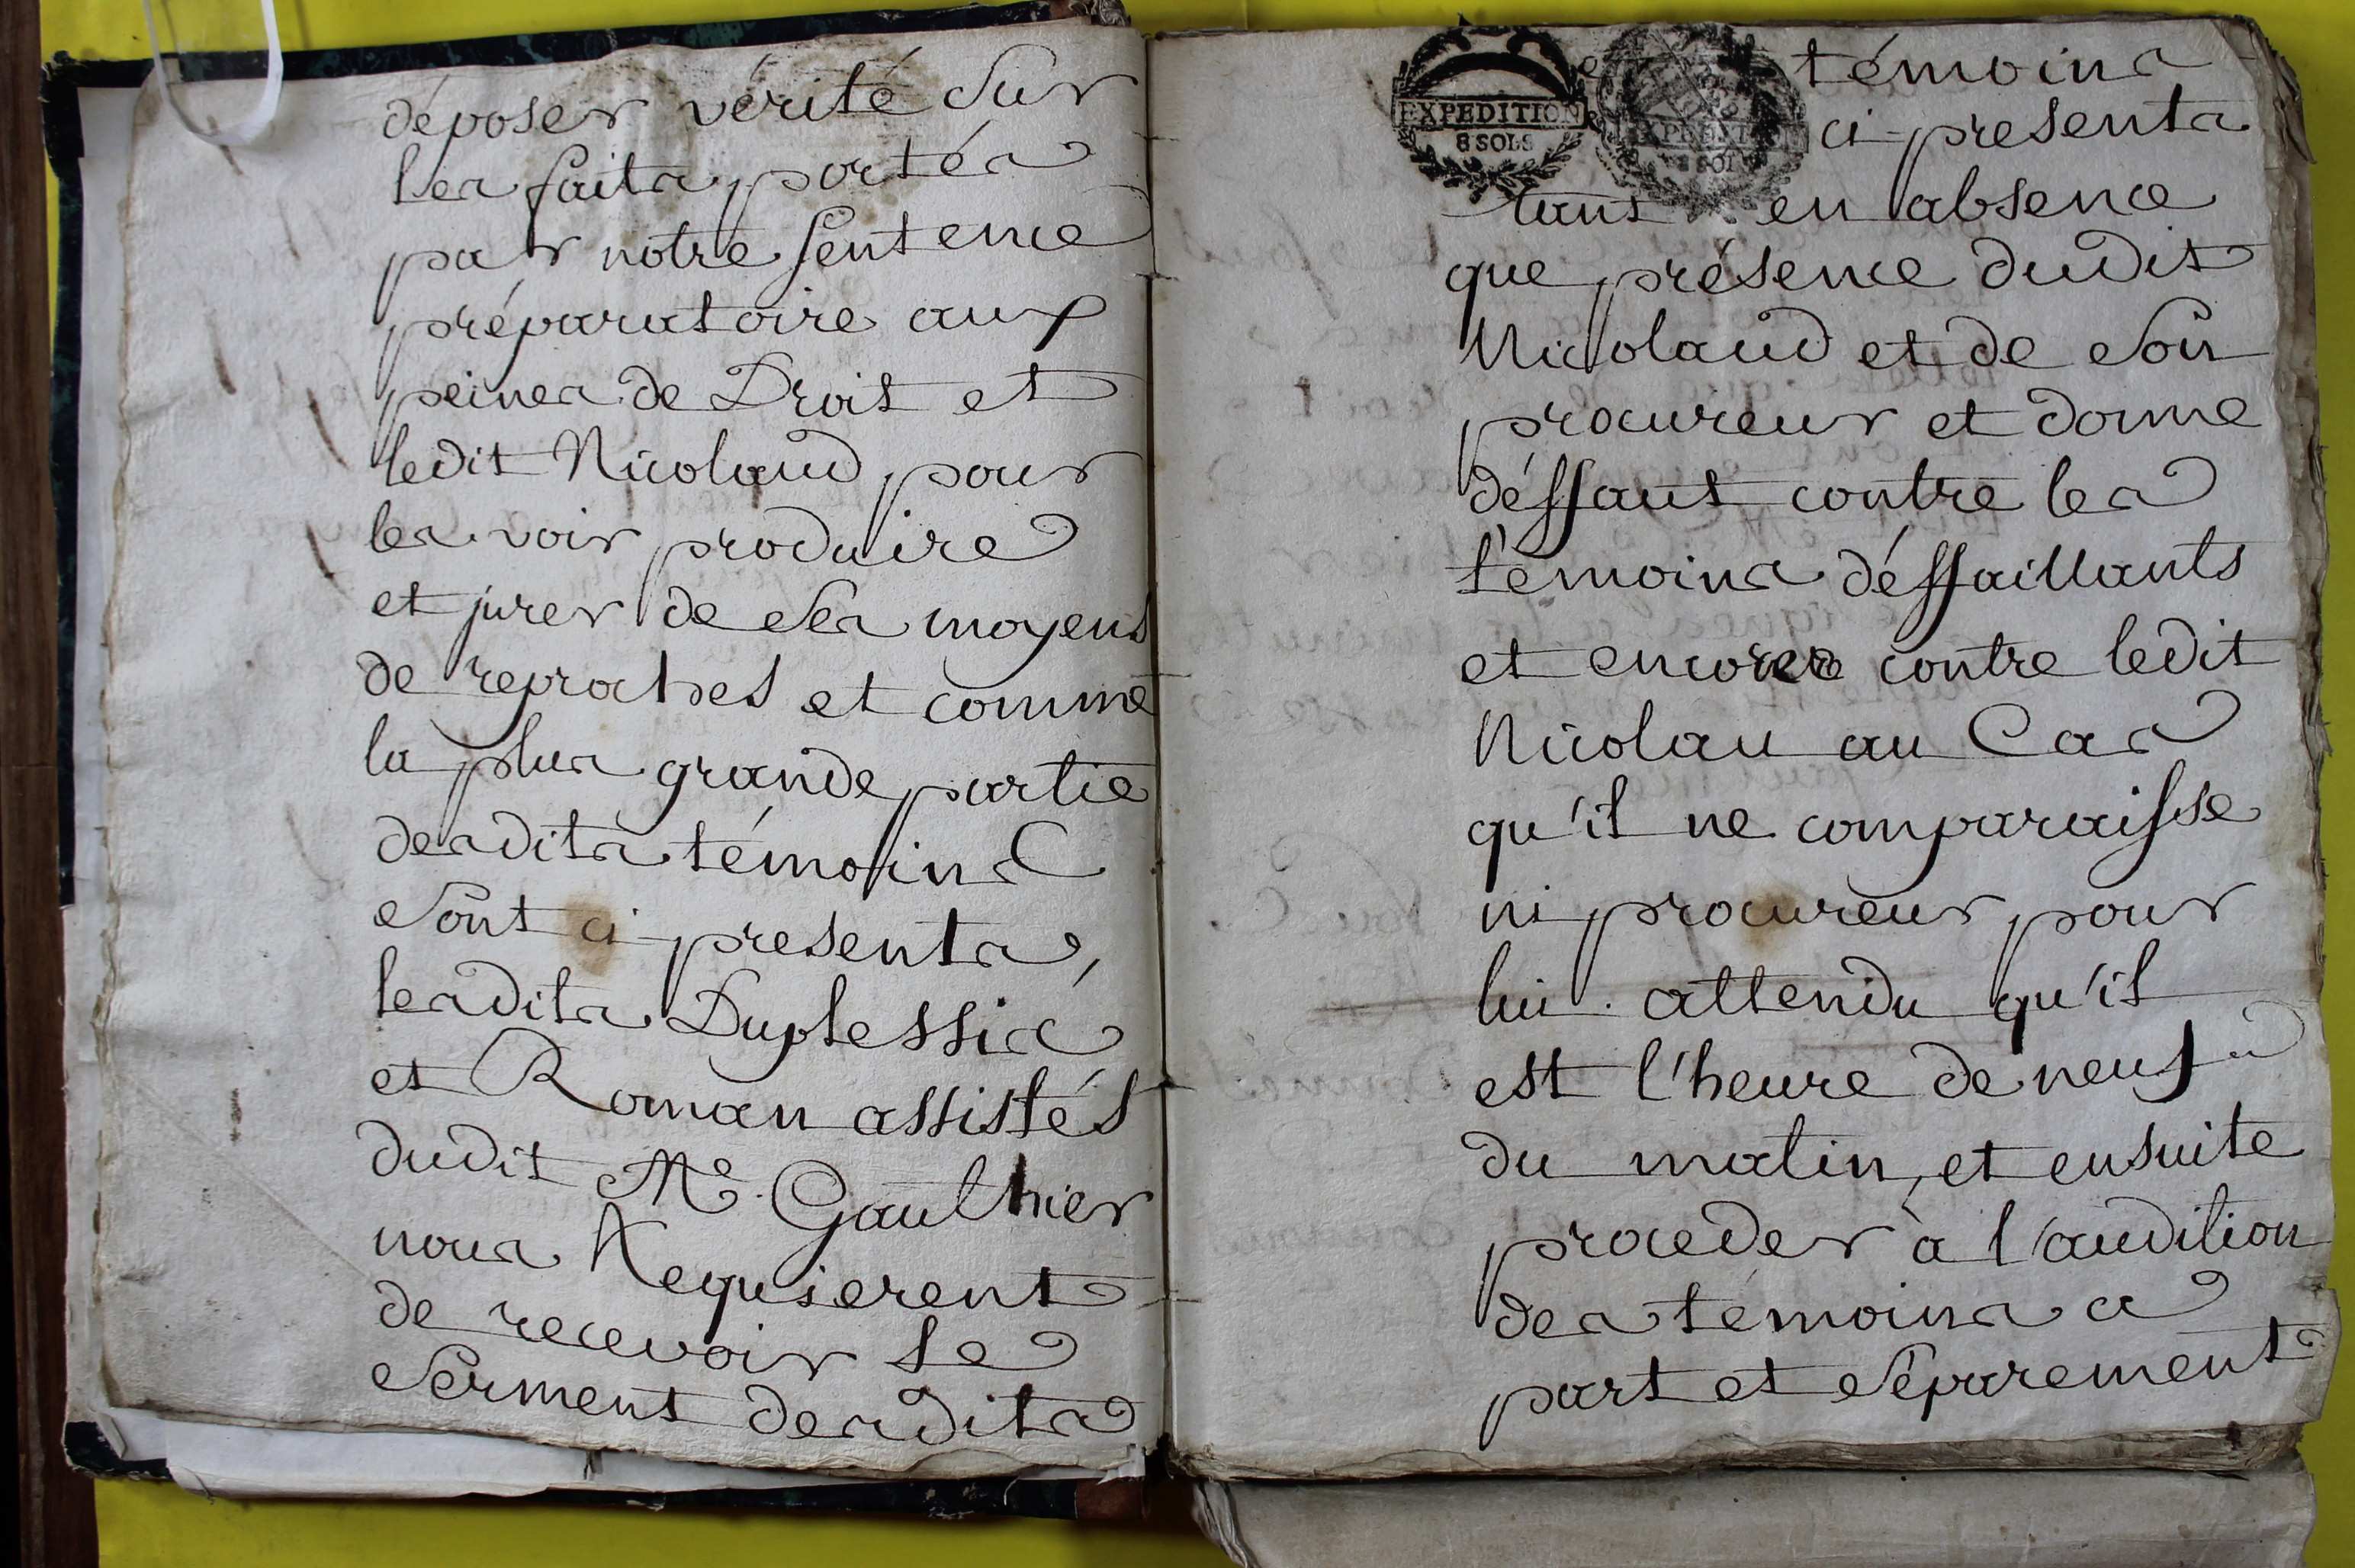 déposer vérité sur
les faits portés
par notre sentence
préparatoire aux
peines de Droit et
ledit Nicolaud pour
les voir produire
et jurer de ses moyens
de reproches et comme
la plus grande partie
desdits témoins
sont ci presents,
lesdits Duplessis
et Roman assistés
dudit Me. Gaulthier
nous Requierent
de recevoir le
serment desdits
témoins
EXPEDITION
8 SOLS
ci presents
tant en absence
que présence dudit
Nicolaud et de son
procureur et donne
déffaut contre les
témoins déffaillants
et encore contre ledit
Nicolau au Cas
qu'il ne comparaisse
ni procureur pour
lui. attendu qu'il
est l'heure de neuf
du matin, et ensuite
proceder à l'audition
des témoins a
part et séparement